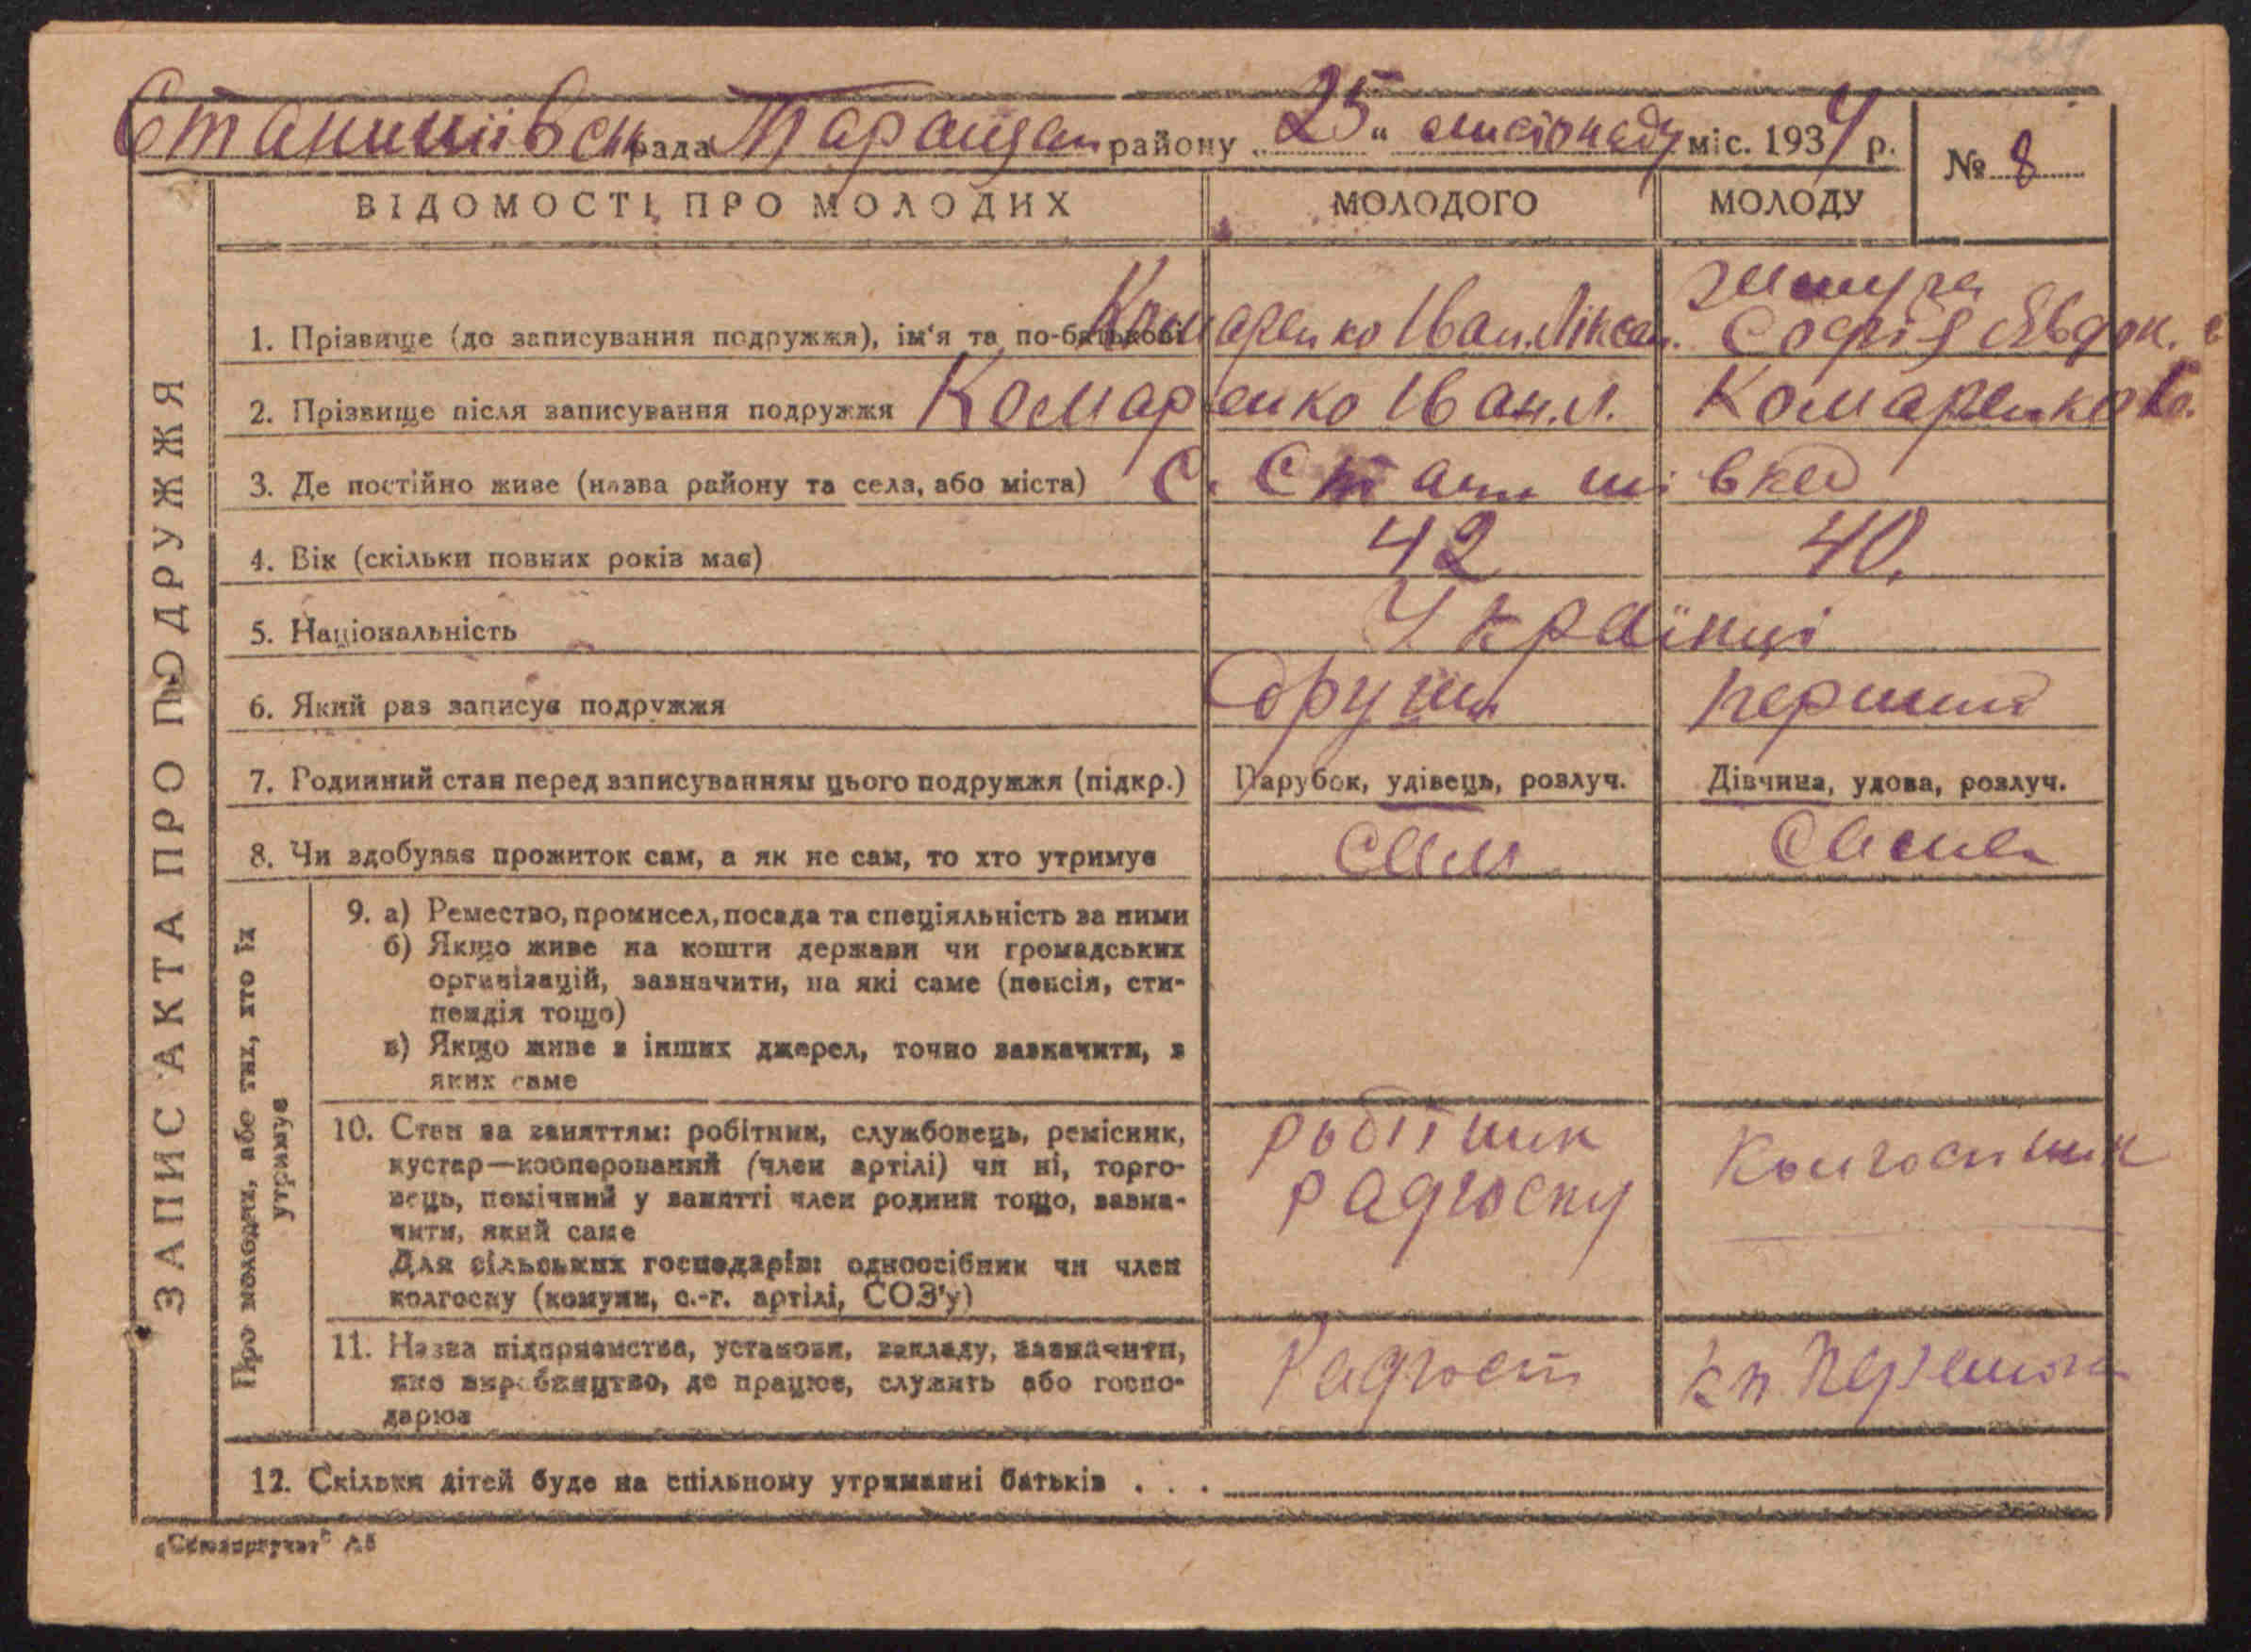 Станишівськ рада Таращан району „25“ листопаду міс. 1934 р. № 8
ВІДОМОСТІ ПРО МОЛОДИХ МОЛОДОГО МОЛОДУ
ЗАПИС АКТА ПРО ПОДРУЖЖЯ
1. Прізвище (до записування подружжя), ім'я та по-батькові Комаренко Іван Ліксан. Софія Явдок.
2. Прізвище після записування подружжя Комаренко Іван. Л. Комаренко Со.
3. Де постійно живе (назва району та села, або міста) с. Станишівка
4. Вік (скільки повних років має) 42 40.
5. Національність Українці
6. Який раз записує подружжя другий перший
7. Родинний стан перед записуванням цього подружжя (підкр.) Парубок, удівець, розлуч. Дівчина, удова, розлуч.
8. Чи здобував прожиток сам, а як не сам, то хто утримує сам сама
Про молодих, або тих, хто їх
утримує
9. а) Ремество, промисел, посада та спеціяльність за ними
б) Якщо живе на кошти держави чи громадських
організацій, зазначити, на які саме (пенсія, сти-
пендія тощо)
в) Якщо живе з інших джерел, точно зазначити, з
яких саме
10. Стан за заняттям: робітник, службовець, ремісник,
кустар—кооперований (член артілі) чи ні, торго-
вець, помічний у занятті член родини тощо, зазна-
чити, який саме
Для сільських господарів: одноосібник чи член
колгоспу (комуни, с.-г. артілі, СОЗ'у)
робітник
радгоспу
колгоспник
11. Назва підприємства, установи, закладу, зазначити,
яке виробництво, де працює, служить або госпо-
дарює
Радгосп
12. Скільки дітей буде на спільному утриманні батьків . . .